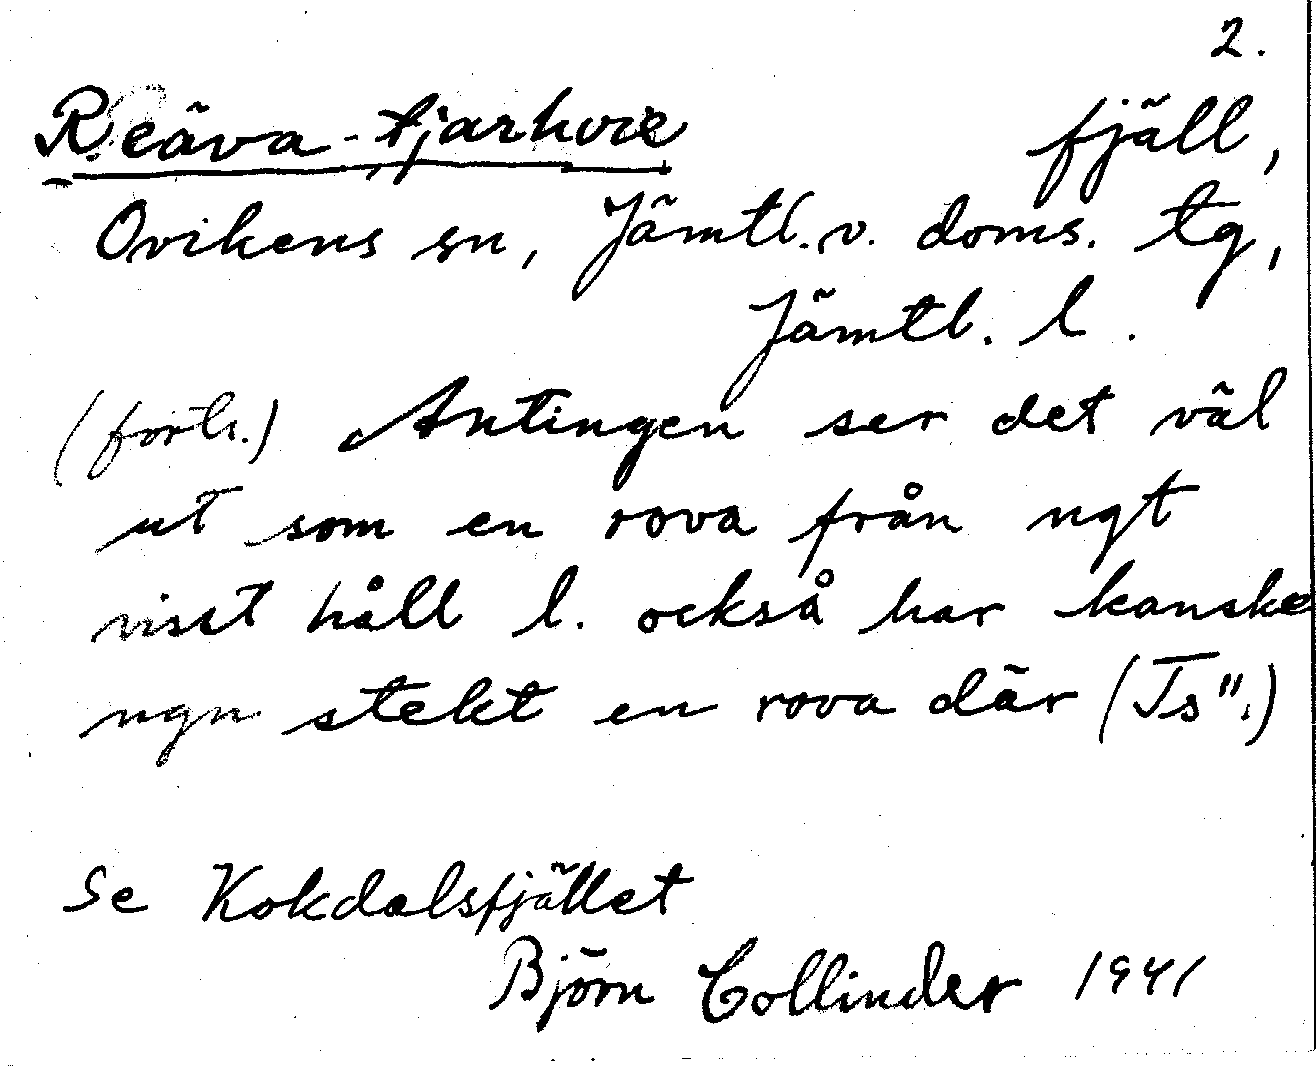 2.
Reäva-tjarhvie fjäll,
Ovikens sn, Jämtl. v. doms. tg,
Jämtl. l.
(forts.) Antingen ser det väl
ut som en rova från ngt
visst håll l. också har kanske
ngn stekt en rova där (Ts".)
Se Kokdalsfjället
Björn Collinder 1941